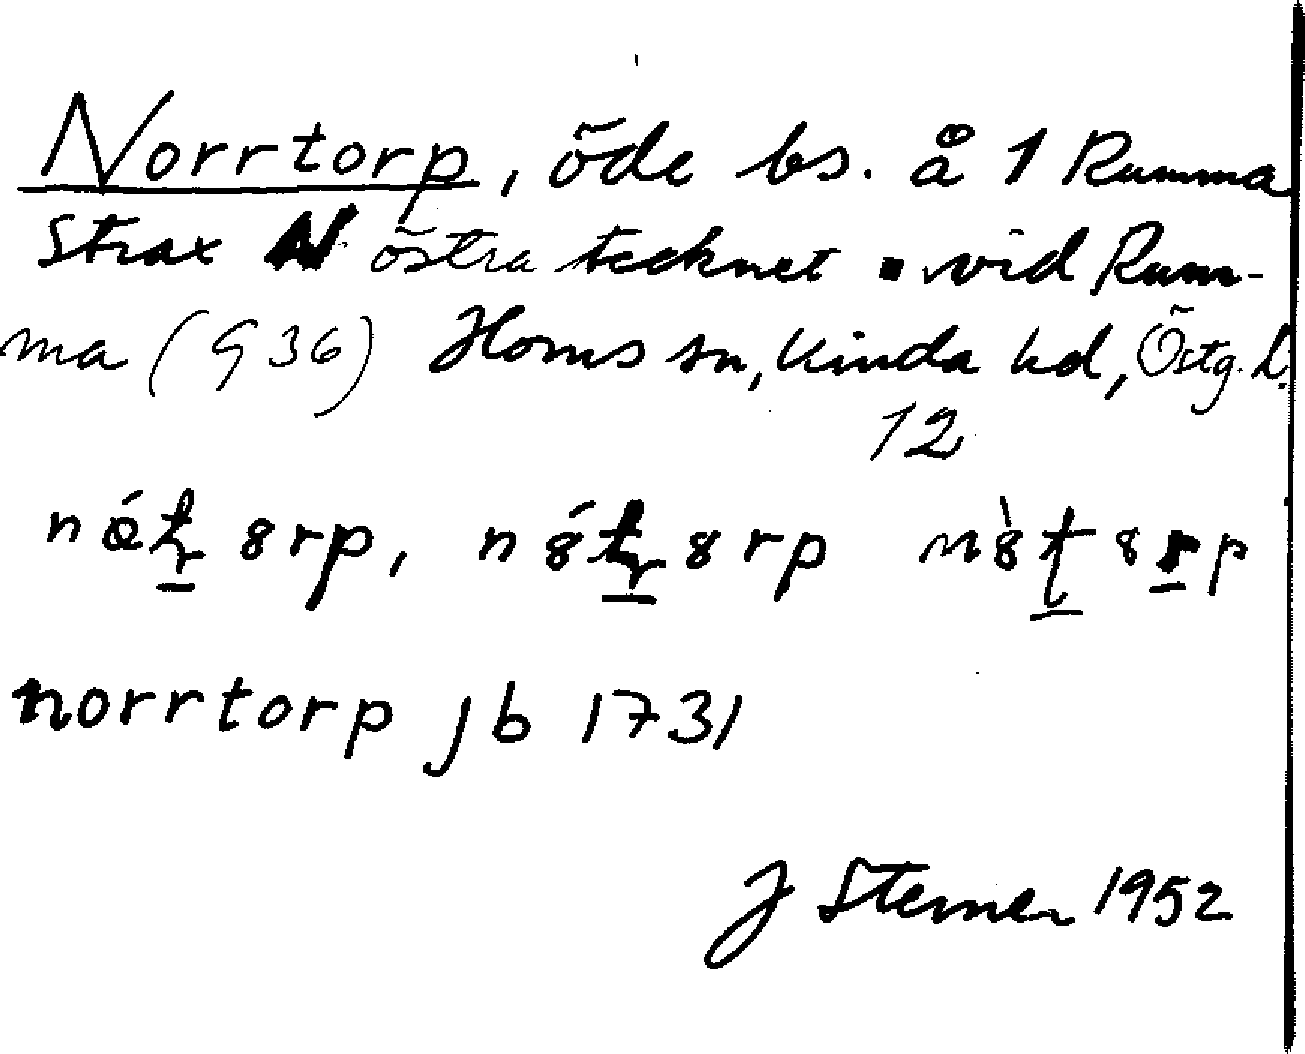 Norrtorp, öde bs. å 1 Rumma
strax N östra tecknet ▪ vid Rum-
ma (G 36) Horns sn, Kinda hd, Östg. L.
12
norrtorp jb 1731
J Sterner 1952